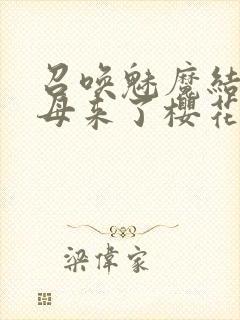 召唤魅魔结
母来了樱花
梁偉家